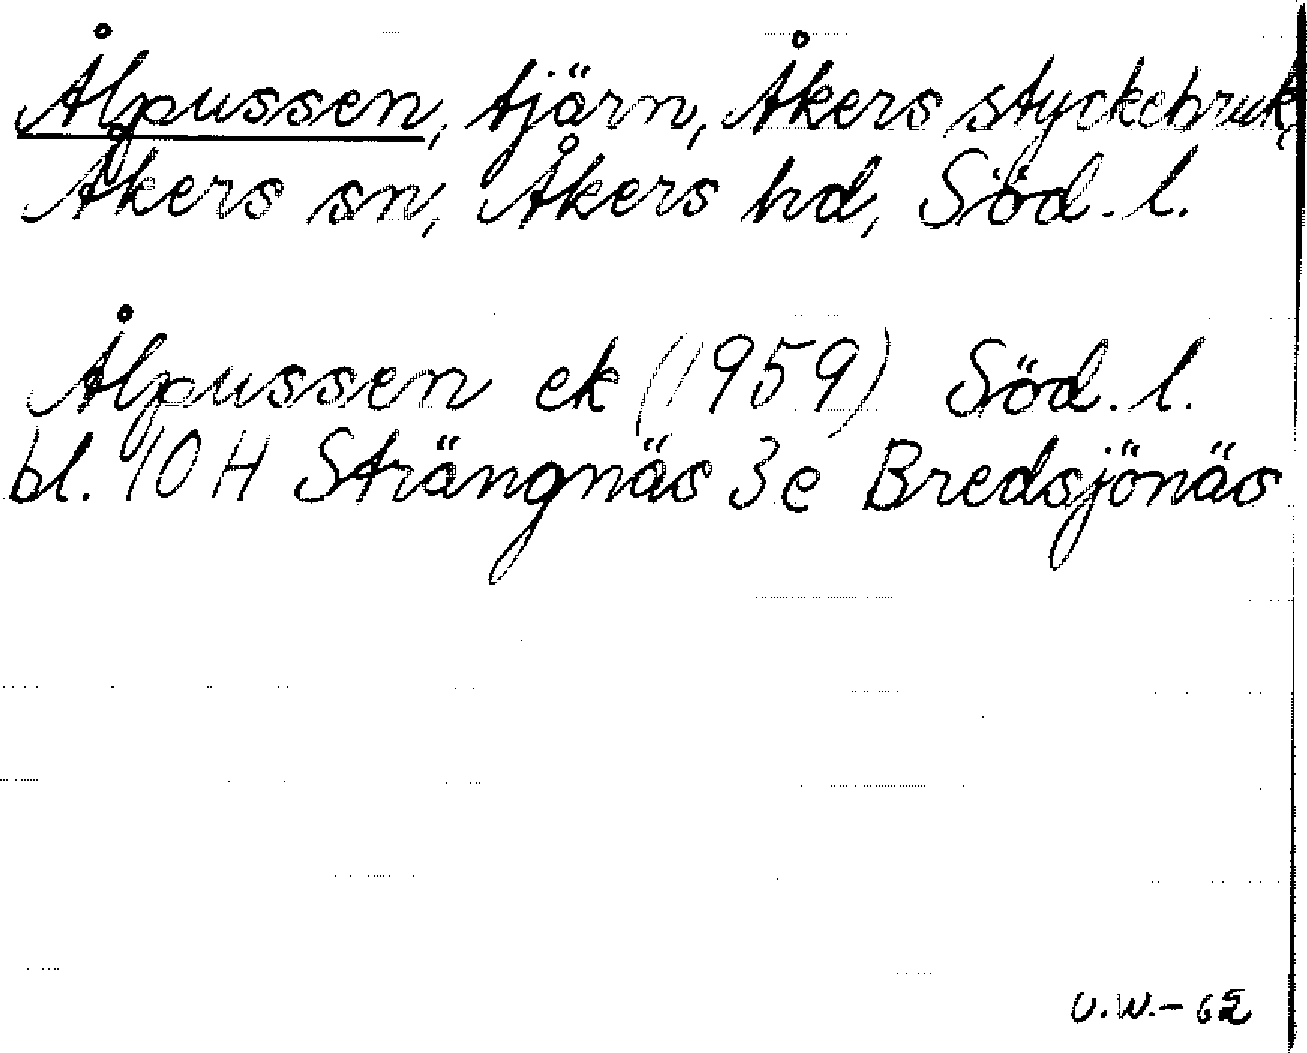 Ålpussen, tjärn, Åkers styckebruk,
Åkers sn, Åkers hd, Söd. l.
Ålpussen ek (1959) Söd. l.
bl. 10 H Strängnäs 3e Bredsjönäs
U.W. - 62